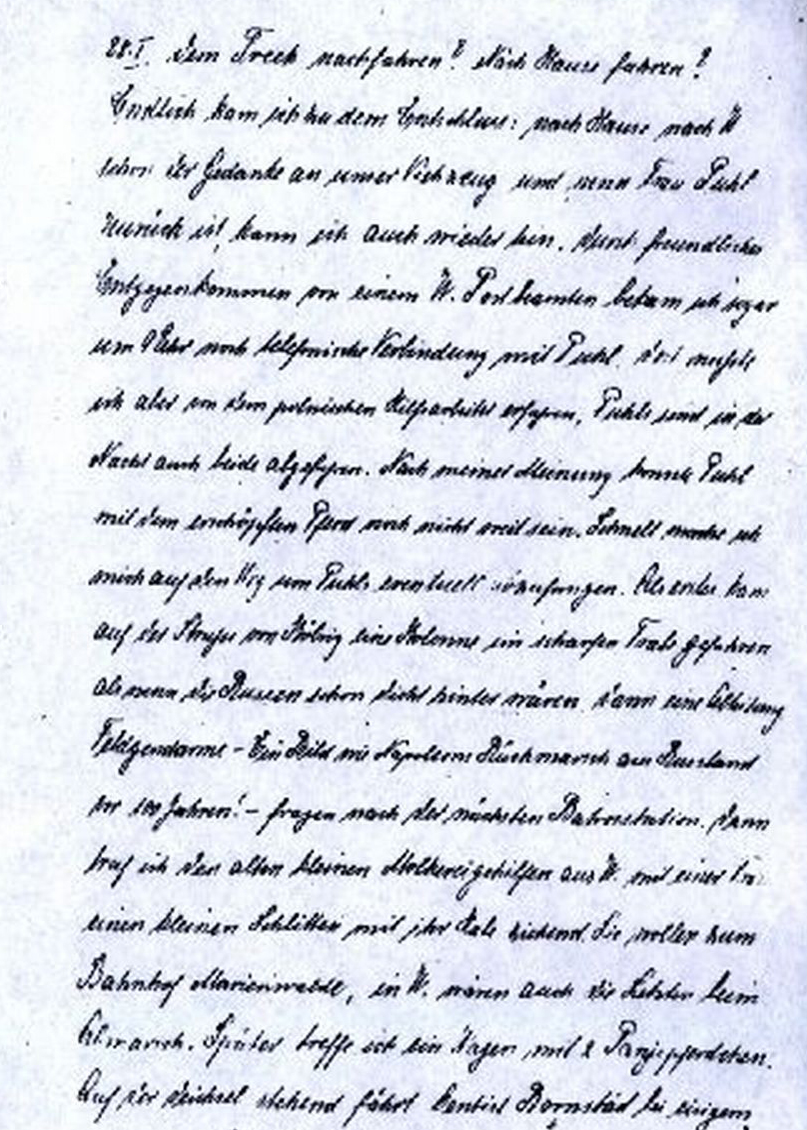 28.I. Dem Treck nachfahren? Nach Hause fahren?
Endlich kam ich zu dem Entschluss: nach Hause nach W
schon der Gedanke an unser Viehzeug und wenn Frau Puhl
zurück ist kann ich auch wieder hin. Durch freundliches
Entgegenkommen von einem W. Postbeamten bekam ich sogar
um 9 Uhr noch telefonische Verbindung mit Puhl. Dort mußte
ich aber von dem polnischen Hilfsarbeiter erfahren, Puhls sind in der
Nacht auch beide abgefahren. Nach meiner Meinung konnte Puhl
mit dem erschöpften Pferd noch nicht weit sein. Schnell machte ich
mich auf den Weg um Puhls eventuell abzufangen. Als erstes kam
auf der Straße von eine Kolonne im scharfen Trabe gefahren
als wenn die Russen schon dicht hinter wären dann eine Abteilung
Feldgendarme - Ein Bild wie Napoleons Rückmarsch aus Russland
vor 100 Jahren! - fragen nach der nächsten Bahnstation. Dann
traf ich den alten kleinen Molkereigehilfen aus W. mit seiner
einen kleinen Schlitten mit ihr Habe ziehend. Sie wollen zum
Bahnhof Marienwalde, in W. wären auch die Letzten beim
Abmarsch. Später treffe ich ein Wagen mit 2 Panjepferdchen.
Auf der Deichsel stehend fährt Bornstäd bei eisigem